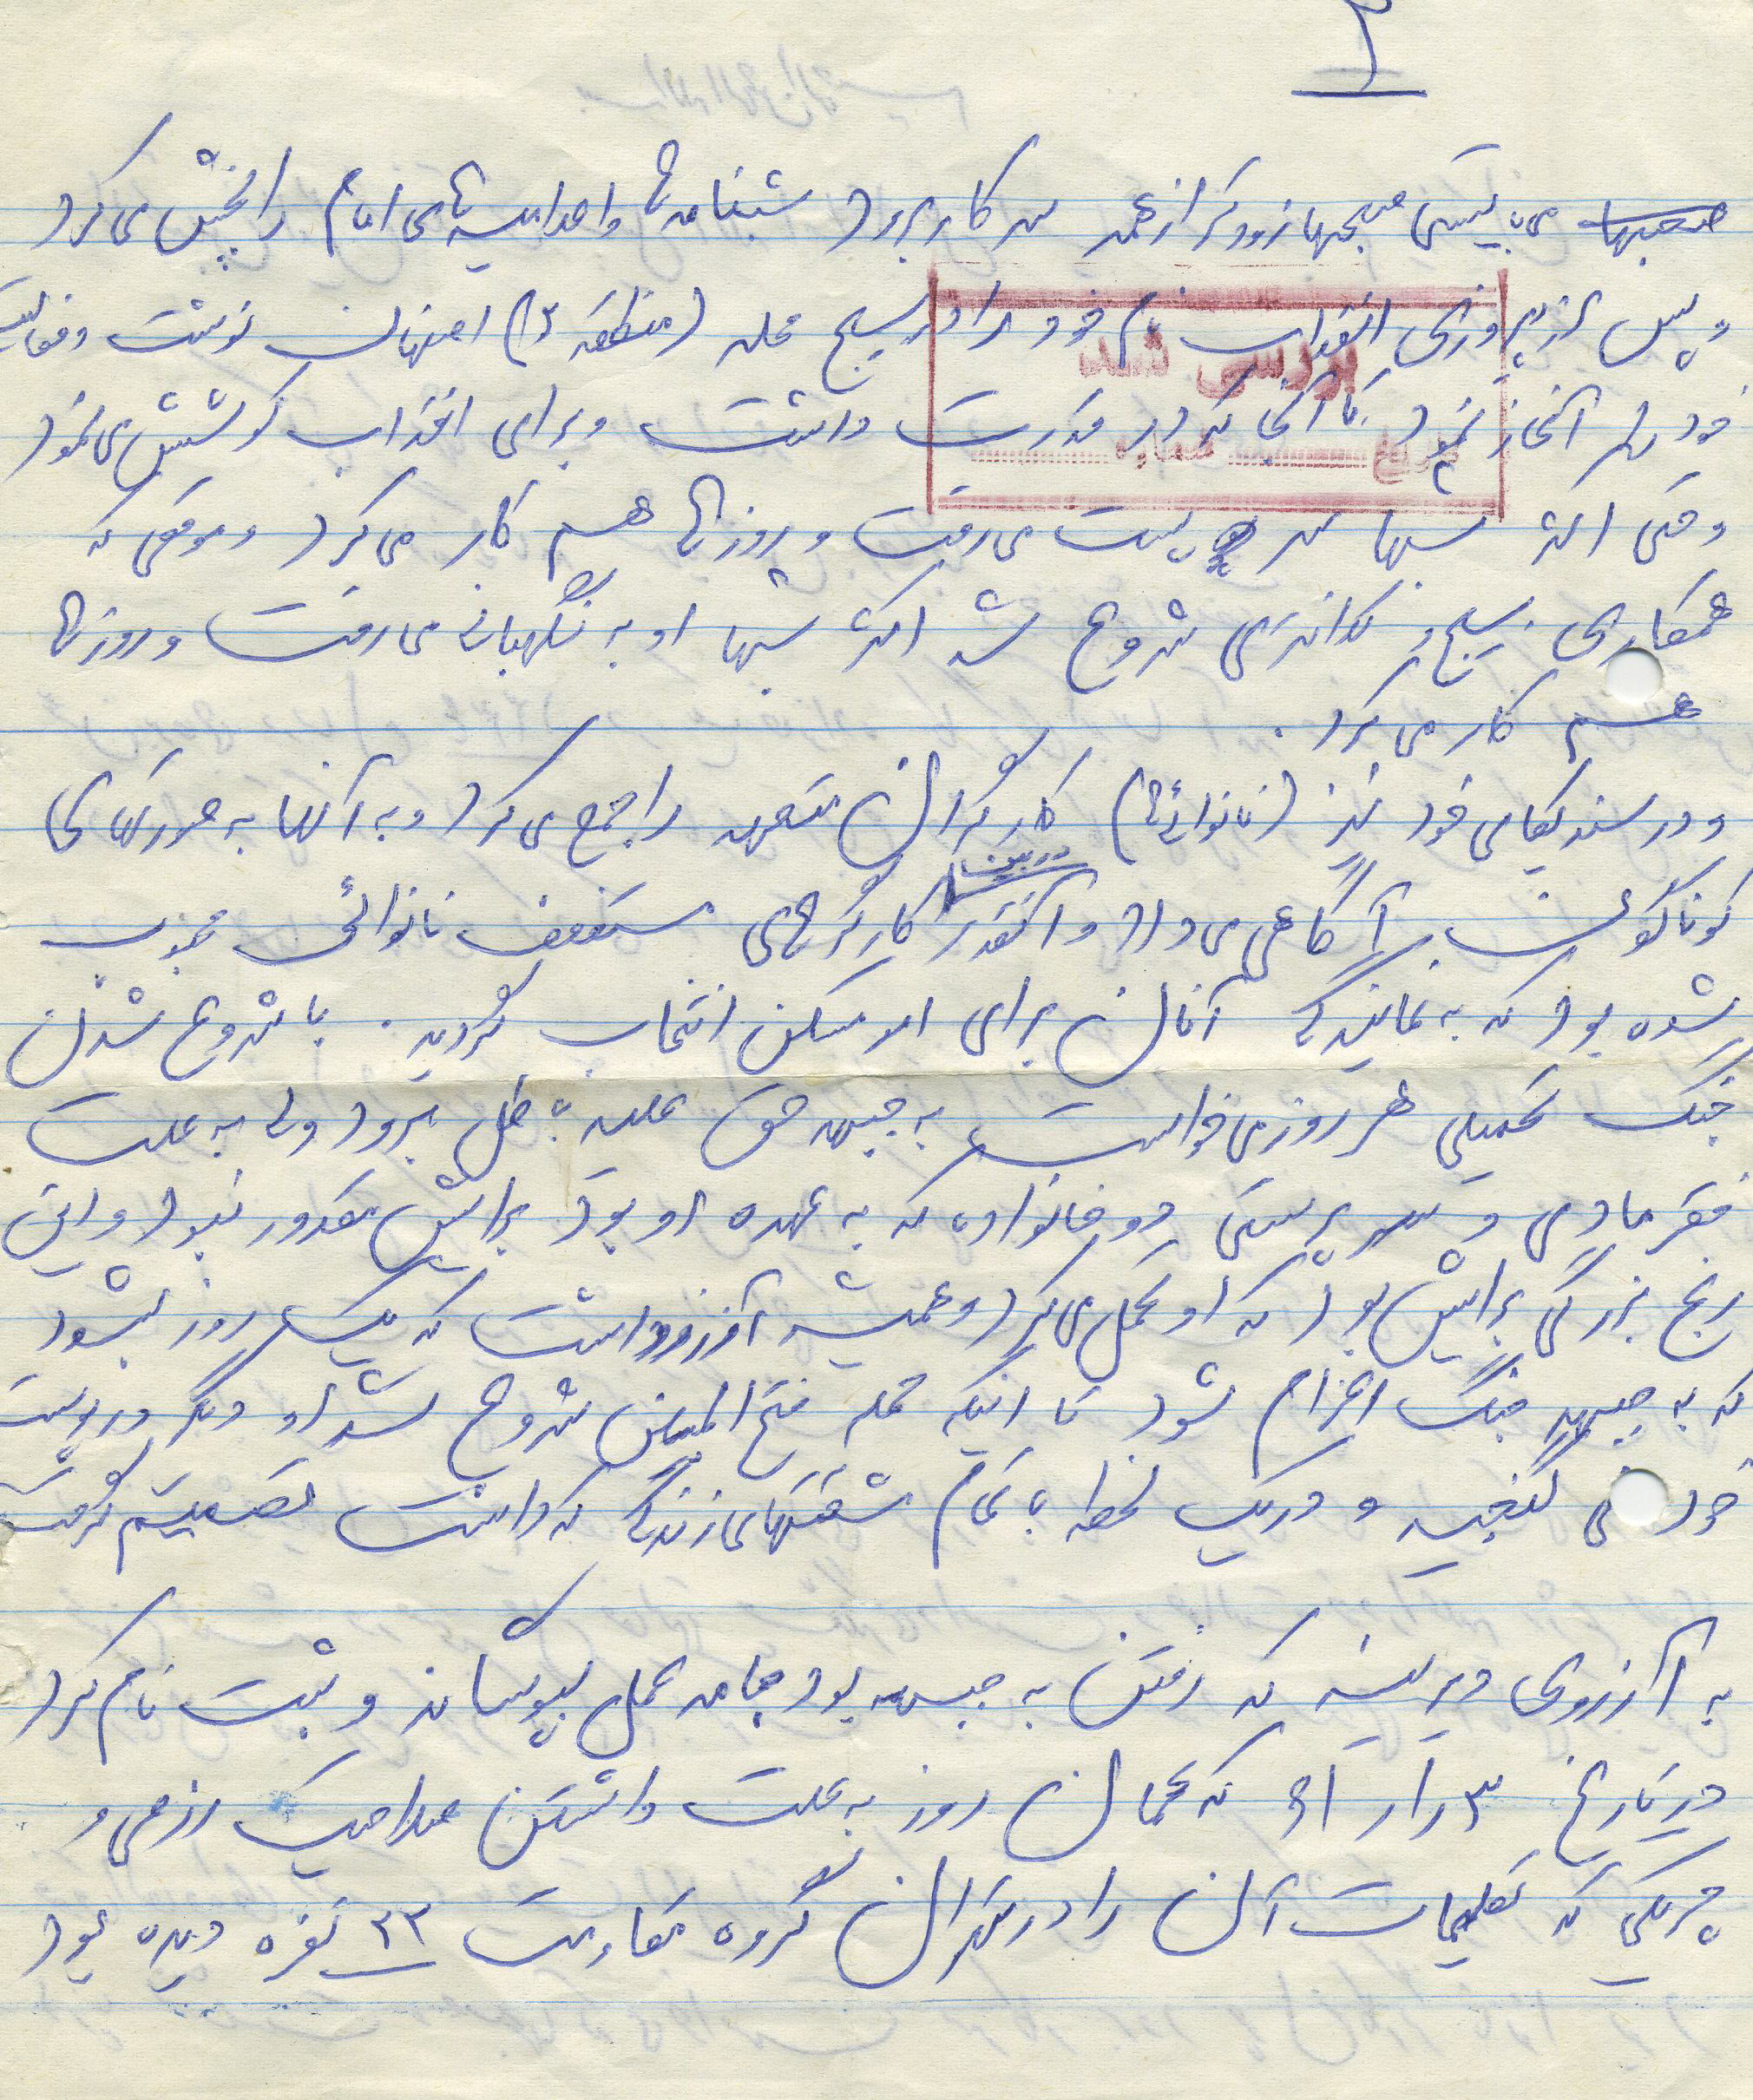 ۲
صبحها می بایستی صبحها زودتر از همه سر کار برود شبنامه ها و اعلامیه های امام را پخش می کرد
و پس از پیروزی انقلاب نام خود را در بسیج محله (منطقه ۳) اصفهان نوشت و فعالیت
خود را آغاز نمود تا آنجا که در قدرت داشت و برای انقلاب کوشش می نمود
و حتی اکثر شبها سر پست می رفت و روزها هم کار می کرد و موقعی که
همکاری بسیج و کلانتری شروع شد اکثر شبها او به نگهبانی می رفت و روزها
هم کار می کرد.
و در سندیکای خود نیز (نانوائی) کارگران متعهد را جمع می کرد و به آنها به صورتهای
گوناگون آگاهی می داد و آنقدر در بین کارگرهای مستضعف نانوائی محبوب
شده بود که به نمایندگی آنان برای امر مسکن انتخاب گردید. با شروع شدن
جنگ تحمیلی هر روز می خواست به جبهه حق علیه باطل برود ولی به علت
فقر مادی و سرپرستی دو خانواده که به عهده او بود برایش مقدور نبود و این
رنج بزرگی برایش بود که او تحمل می کرد و همیشه آرزو داشت که یک روز بشود
که به جبهه جنگ اعزام شود تا اینکه حمله فتح المبین شروع شد او دیگر در پوست
خود نمی گنجید و در یک لحظه با تمام مشقتهای زندگی که داشت تصمیم گرفت
به آرزوی دیرینه که رفتن به جبهه بود جامه عمل بپوشاند و ثبت نام کرد
در تاریخ ۳ر۱ر۶۱ که همان روز به علت داشتن صلاحیت رزمی و
چریکی که تعلیمات آن را در تهران گروه مقاومت ۲۲ نفره دیده بود
بررسی شد
تاریخ